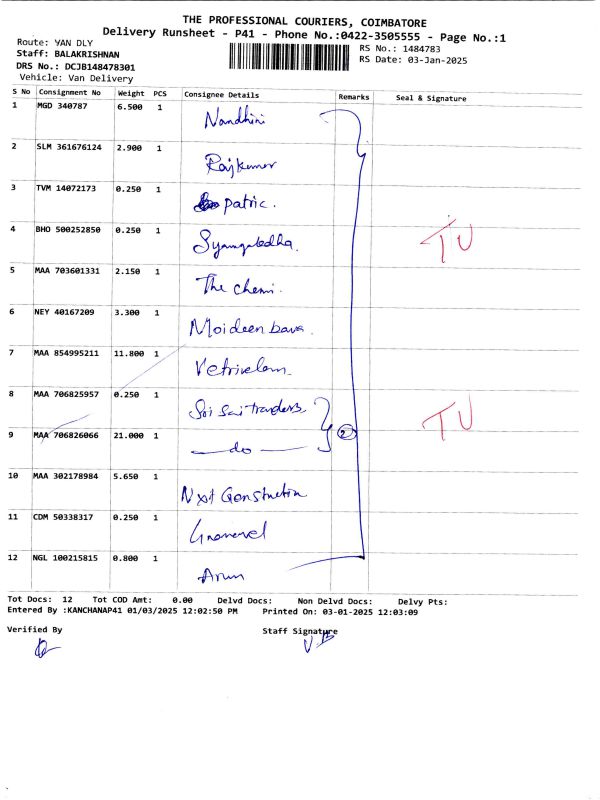 THE PROFESSIONAL COURIERS, COIMBATORE
Delivery Runsheet - P41 - Phone No.:0422-3505555 - Page No.:1
Route: YAN DLY
Staff: BALAKRISHNAN
DRS No.: DCJB148478301
Vehicle: Van Delivery
RS No.: 1484783
RS Date: 03-Jan-2025
S No Consignment No Weight PCS Consignee Details Remarks Seal & Signature
1 MGD 340787 6.500 1 Nandhini
2 SLM 361676124 2.900 1 Rajkumar
3 TVM 14072173 0.250 1 patric.
4 BHO 500252850 0.250 1 TU
5 MAA 703601331 2.150 1 The chemi.
6 NEY 40167209 3.300 1 Moideen bava.
7 MAA 854995211 11.800 1 Vetrivelam
8 MAA 706825957 0.250 1 Sri Sai Traders TU
9 MAA 706826066 21.000 1 — do — 2
10 MAA 302178984 5.650 1 Nxt Constructin
11 CDM 50338317 0.250 1
12 NGL 100215815 0.800 1 Arun
Tot Docs: 12 Tot COD Amt: 0.00 Delvd Docs: Non Delvd Docs: Delvy Pts:
Entered By :KANCHANAP41 01/03/2025 12:02:50 PM Printed On: 03-01-2025 12:03:09
Verified By Staff Signature